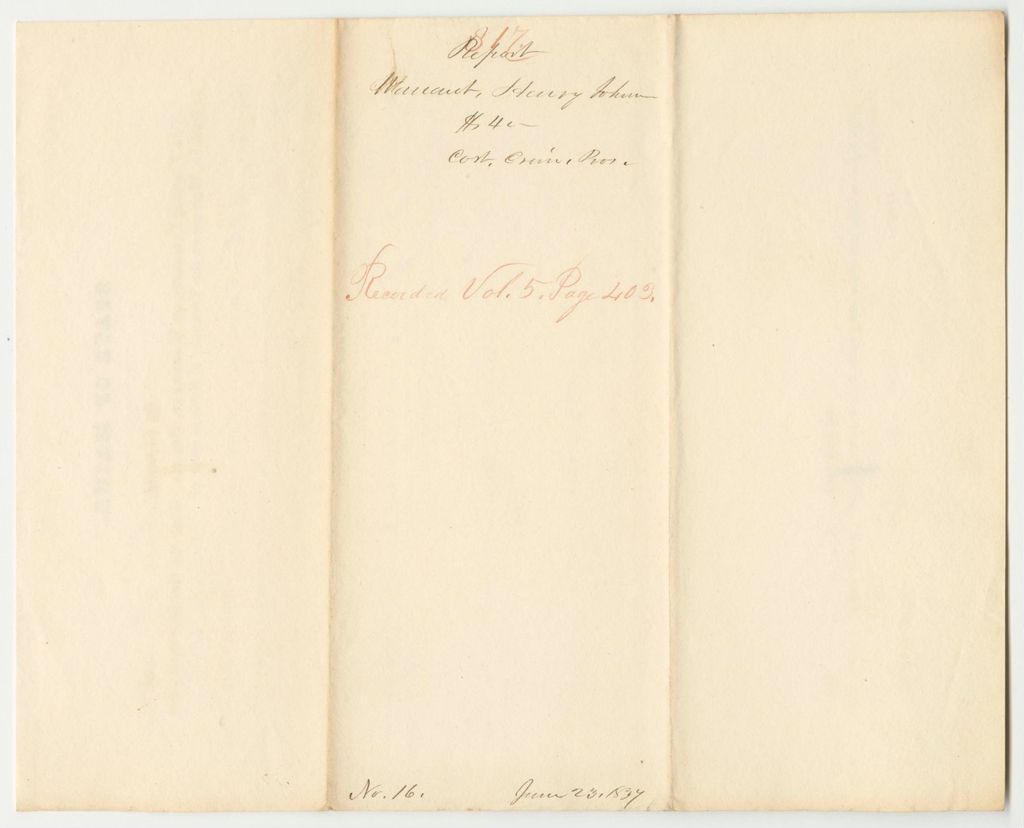 817
Report
Warrant, Henry Johnson
$4.—
Cost, Crim, Pros.
Recorded Vol. 5. Page 403.
No. 16. June 23. 1837